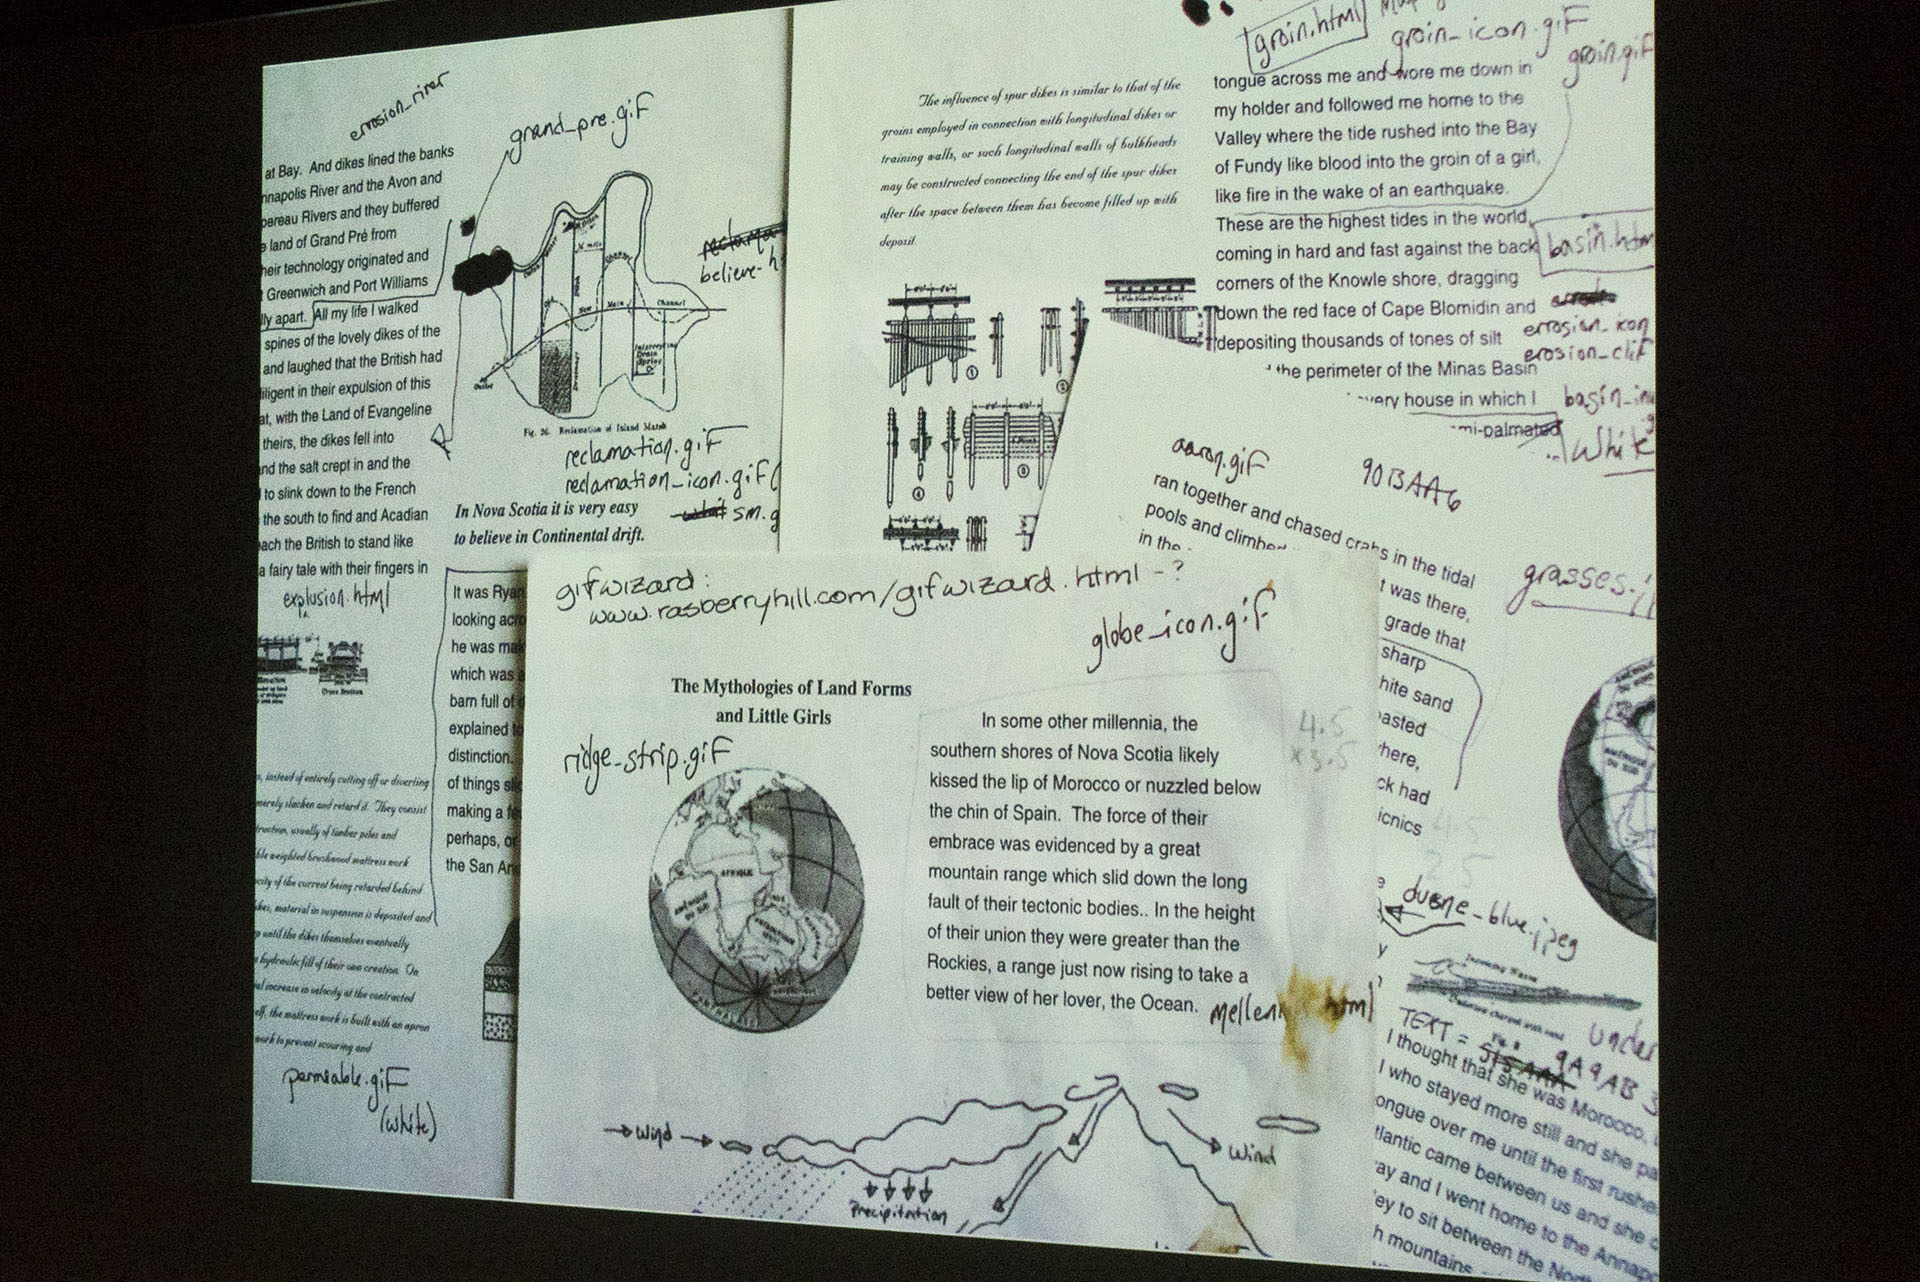 errosion_river
grand_pre.gif
at Bay. And dikes lined the banks
nnapolis River and the Avon and
pereau Rivers and they buffered
land of Grand Pré from
heir technology originated and
Greenwich and Port Williams
lly apart. All my life I walked
spines of the lovely dikes of the
and laughed that the British had
illigent in their expulsion of this
at, with the Land of Evangeline
theirs, the dikes fell into
nd the salt crept in and the
to slink down to the French
the south to find and Acadian
each the British to stand like
a fairy tale with their fingers in
explusion.html
believe-h
Main Channel
Outlet
Fig. 26. Reclamation of Island Marsh
reclamation.gif
reclamation_icon.gif
sm.g
In Nova Scotia it is very easy
to believe in Continental drift.
It was Ryan
looking acr
he was ma
which was
barn full of
explained
distinction.
of things
making a
perhaps, or
the San An
Cross Section
, instead of entirely cutting off or diverting
merely slacken and retard it. They consist
truction, usually of timber piles and
ble weighted brushwood mattress work
city of the current being retarded behind
ikes, material in suspension is deposited and
p until the dikes themselves eventually
hydraulic fill of their own creation. On
al increase in velocity at the contracted
elf, the mattress work is built with an apron
work to prevent scouring and
permiable.gif
(white)
The influence of spur dikes is similar to that of the
groins employed in connection with longitudinal dikes or
training walls, or such longitudinal walls of bulkheads
may be constructed connecting the end of the spur dikes
after the space between them has become filled up with
deposit.
groin.html
groin_icon.gif
groin.gif
tongue across me and wore me down in
my holder and followed me home to the
Valley where the tide rushed into the Bay
of Fundy like blood into the groin of a girl,
like fire in the wake of an earthquake.
These are the highest tides in the world,
coming in hard and fast against the back
corners of the Knowle shore, dragging
down the red face of Cape Blomidin and
depositing thousands of tones of silt
the perimeter of the Minas Basin
very house in which I
mi-palmated
basin.htm
errosion_icon
erosion_clif
basin_
White
aaron.gif
90BAA6
ran together and chased crabs in the tidal
pools and climbed
in the
t was there,
grade that
sharp
hite sand
pasted
here,
ck had
icnics
grasses.j
4.5
25
duene_blue.jpeg
TEXT =
9A9AB3
under
Fig. 8
I thought that she was Morocco,
I who stayed more still and she pa
ongue over me until the first rushe
tlantic came between us and she c
ay and I went home to the Annapo
ey to sit between the North
h mountains
gifwizard:
www.rasberryhill.com/gifwizard.html - ?
globe_icon.gif
The Mythologies of Land Forms
and Little Girls
ridge_strip.gif
AFRIQUE
AMÉRIQUE
DU SUD
In some other millennia, the
southern shores of Nova Scotia likely
kissed the lip of Morocco or nuzzled below
the chin of Spain. The force of their
embrace was evidenced by a great
mountain range which slid down the long
fault of their tectonic bodies.. In the height
of their union they were greater than the
Rockies, a range just now rising to take a
better view of her lover, the Ocean.
4.5
x 3.5
html
Wind
Wind
Precipitation